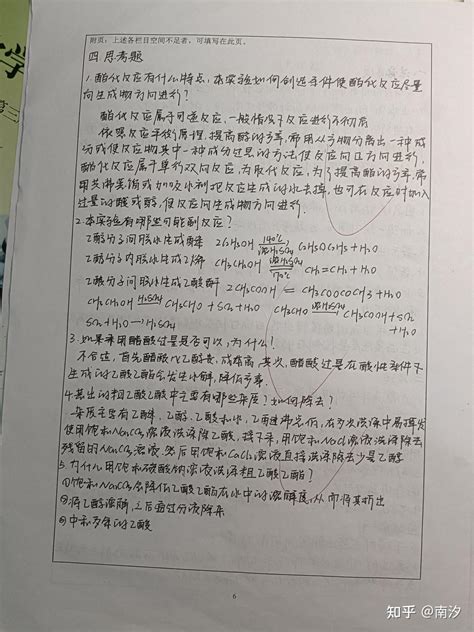 附页:上述各栏目空间不足者,可填写在此页。
四.思考题
1.酯化反应有什么特点,本实验如何创造条件使酯化反应尽量
向生成物方向进行?
酯化反应属于可逆反应,一般情况下反应进行不彻底
依照反应平衡原理,提高酯的产率,常用从产物分离出一种成
分或使反应物其中一种成分过量的方法使反应向正方向进行,
酯化反应属于单行双向反应,为取代反应,为了提高酯的产率,常
用共沸蒸馏或加吸水剂把反应生成的水去掉,也可在反应时加入
过量的酸或醇,使反应向生成物方向进行.
2.本实验有哪些可能副反应?
乙醇分子间脱水生成乙醚 2C2H5OH 140℃ 浓H2SO4 C2H5OC2H5+H2O
乙醇分子内脱水生成乙烯 CH3CH2OH 浓H2SO4 170℃ CH2=CH2+H2O
乙酸分子间脱水生成乙酸酐 2CH3COOH ⇌ CH3COOCOCH3+H2O
CH3CH2OH H2SO4 CH3CHO+SO2+H2O CH3CHO 浓H2SO4 CH3COOH+SO2
+H2O
SO2+H2O→H2SO4
3.如果采用醋酸过量是否可以,为什么?
不合适,首先醋酸比乙醇贵,成本高 其次,醋酸过量在酸性条件下
生成的乙酸乙酯会发生水解,降低产率.
4.蒸出的粗乙酸乙酯中主要有哪些杂质?如何除去?
杂质主要有乙醚、乙醇、乙酸和水,乙醚沸点低,在多次洗涤中易挥发
使用饱和Na2CO3溶液洗涤除乙酸,接下来,用饱和NaCl溶液洗涤除去
残留的Na2CO3溶液,然后用饱和CaCl2溶液直接洗涤除去少量乙醇
5.为什么用饱和碳酸钠溶液洗涤粗乙酸乙酯?
①饱和Na2CO3会降低乙酸乙酯在水中的溶解度,从而将其析出
②将乙醇溶解,之后通过分液除来
③中和多余的乙酸
6
知乎 @南汐